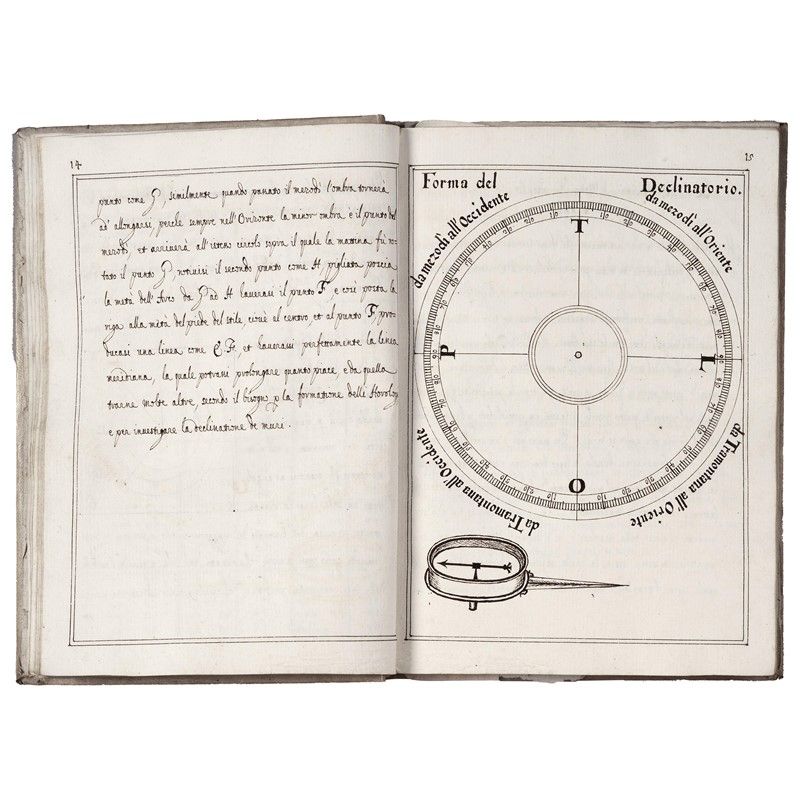 14
punto come G, similmente quando passato il mezodì l'ombra tornerà
ad' allongarsi, perche sempre nell'Orizonte la minor ombra è il punto del
merodi, et arriverà all'istesso circolo sopra il quale la mattina fù no-
tato il punto G notisi il secondo punto come H pigliata poscia
la metà dell'Arco da G ad H haverasi il punto F, e così posta la
riga alla metà del piede del stile, cioè al centro, et al punto F, pro-
ducasi una linea come E.F. et haverassi perfettamente la linea
meridiana, la quale potrassi prolongare quanto piace, e da quella
trarne molte altre, secondo il bisogno p la formatione delli Horologi
e per investigare la declinatione de muri.
15
Forma del Declinatorio.
da mezodi all'Occidente
da mezodi all'Oriente
T
P
L
O
da Tramontana all'Occidente
da Tramontana all'Oriente